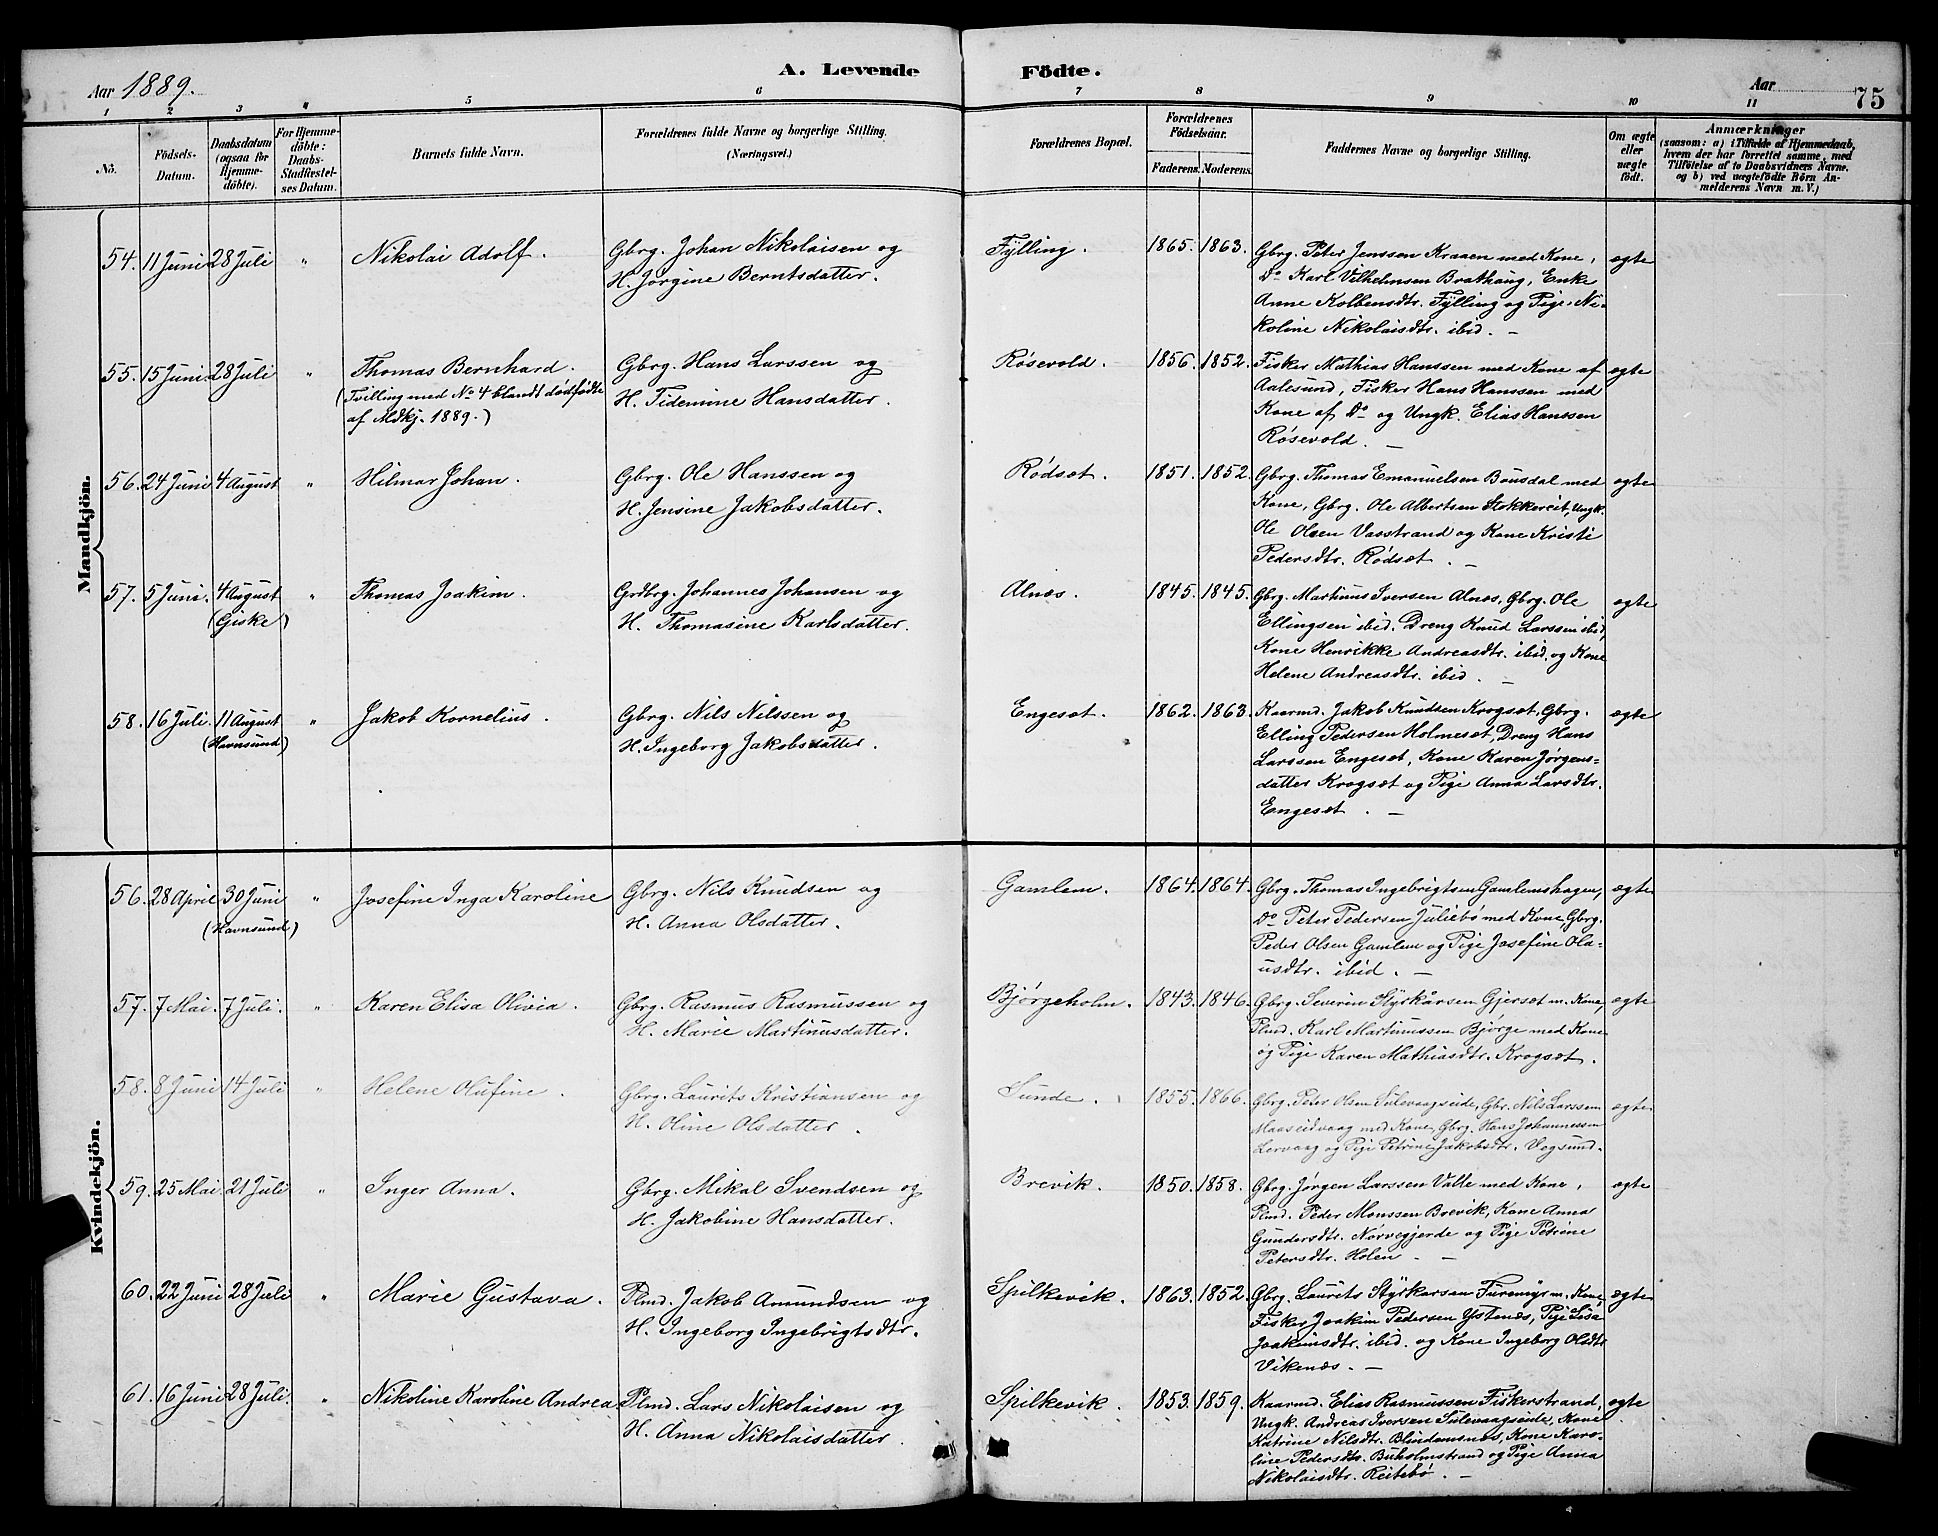 Aar 1889.
A. Levende
Födte.
Aar
75
1 2 3 " 5 6 7 8 9 10 11
No.
Födsels-
Datum.
Daabsdatum
(ogsaa for
Hjemme-
döbte).
For Hjemme-
döbte:
Daabs-
Stadfæstel-
ses Datum.
Barnets fulde Navn.
Forældrenes fulde Navne og borgerlige Stilling.
(Næringsvei.)
Forældrenes Bopæl.
Forældrenes
Födselsaar.
Faderens. Moderens.
Faddernes Navne og borgerlige Stilling.
Om ægte
eller
uægte
födt.
Anmærkninger
(saasom: a) i Tilfælde af Hjemmedaab,
hvem der har forrettet samme, med
Tilföielse af to Daabsvidners Navne,
og b) ved uægtefödte Börn An-
melderens Navn m. V.)
Mandkjön.
54. 11 Juni 28 Juli " Nikolai Adolf.
Gbrg. Johan Nikolaisen og
H. Jørgine Berntsdatter.
Fylling. 1865. 1863.
Gbrg. Peter Jenssen Kraaen med Kone,
Do Karl Vilhelmsen Brathaug, Enke
Anne Kolbensdtr. Fylling og Pige Ni-
koline Nikolaisdtr. ibid. —
ægte
55. 15 Juni 28 Juli " Thomas Bernhard.
(Tvilling med No 4 blandt dødfødte
af Mdkj. 1889.)
Gbrg. Hans Larssen og
H. Tidemine Hansdatter.
Røsevold. 1856. 1852.
Fisker Mathias Hanssen med Kone af
Aalesund, Fisker Hans Hanssen med
Kone af Do og Ungk. Elias Hanssen
Røsevold. —
ægte
56. 24 Juni 4 August " Hilmar Johan.
Gbrg. Ole Hanssen og
H. Jensine Jakobsdatter.
Rødsæt. 1851. 1852.
Gbrg. Thomas Emanuelsen Bousdal med
Kone, Gbrg. Ole Albertsen Stokkereit, Ungk.
Ole Olsen Vasstrand og Kone Kristi
Pedersdtr. Rødsæt. —
ægte
57. 5 Juni. 4 August
(Giske)
" Thomas Joakim.
Grdbrg. Johannes Johansen og
H. Thomasine Karlsdatter.
Alnæs. 1845. 1845.
Gbrg. Martinus Iversen Alnæs, Gbrg. Ole
Ellingsen ibid. Dreng Knud Larssen ibid,
Kone Henrikke Andreasdtr. ibid. og Kone
Helene Andreasdtr. ibid. —
ægte
58. 16 Juli. 11 August
(Havnsund)
" Jakob Kornelius.
Gbrg. Nils Nilssen og
H. Ingeborg Jakobsdatter.
Engeset. 1862. 1863.
Kaarmd. Jakob Knudsen Krogsæt, Gbrg.
Elling Pedersen Holmeset, Dreng Hans
Larssen Engeset, Kone Karen Jørgens-
datter Krogsæt og Pige Anna Larsdtr.
Engesæt. —
ægte
Kvindekjön.
56. 28 April 30 Juni
(Havnsund)
" Josefine Inga Karoline
Gbrg. Nils Knudsen og
H. Anna Olsdatter.
Gamlem. 1864. 1864.
Gbrg. Thomas Ingebrigtsen Gamlemshagen,
Do Peter Pedersen Juliebø med Kone, Gbrg.
Peder Olsen Gamlem og Pige Josefine Ola-
usdtr. ibid. —
ægte
57. 7 Mai. 7 Juli. " Karen Elisa Olivia.
Gbrg. Rasmus Rasmussen og
H. Marie Martinusdatter.
Bjørgeholm. 1843. 1846.
Gbrg. Severin Styrkårsen Gjerset m. Kone,
Plmd. Karl Martinussen Bjørge med Kone
og Pige Karen Mathiasdtr. Krogsæt.
ægte
58. 8 Juni 14 Juli " Helene Olufine.
Gbrg. Laurits Kristiansen og
H. Oline Olsdatter.
Sunde. 1855. 1866.
Gbrg. Peter Olsen Sulevaagseide, Gbr. Nils Larssen
Maaseidvaag med Kone, Gbrg. Hans Johannessen
Lervaag og Pige Petrine Jakobsdtr. Vegsund.
ægte
59. 25 Mai 21 Juli " Inger Anna.
Gbrg. Mikal Svendsen og
H. Jakobine Hansdatter.
Brevik. 1850. 1858.
Gbrg. Jørgen Larssen Valle med Kone,
Plmd. Peder Monssen Brevik, Kone Anna
Gundersdtr. Nørvegjerde og Pige Petrine
Petersdtr. Holen —
ægte
60. 22 Juni 28 Juli " Marie Gustava.
Plmd. Jakob Amundsen og
H. Ingeborg Ingebrigtsdtr.
Spilkevik. 1863. 1852.
Gbrg. Laurits Styrkarsen Furemyr m. Kone,
Fisker Joakim Pedersen Ystenæs, Pige Lisa
Joakimsdtr. ibid. og Kone Ingeborg Olsdtr.
Vikenæs. —
ægte
61. 16 Juni 28 Juli. " Nikoline Karoline Andrea
Plmd. Lars Nikolaisen og
H. Anna Nikolaisdatter.
Spilkevik. 1853. 1859.
Kaarmd. Elias Rasmussen Fiskerstrand,
Ungk. Andreas Iversen Sulevaagseide, Kone
Katrine Nilsdtr. Blindamsnes, Kone Karo-
line Pedersdtr. Buholmstrand og Pige Anna
Nikolaisdtr. Reitebø. —
ægte